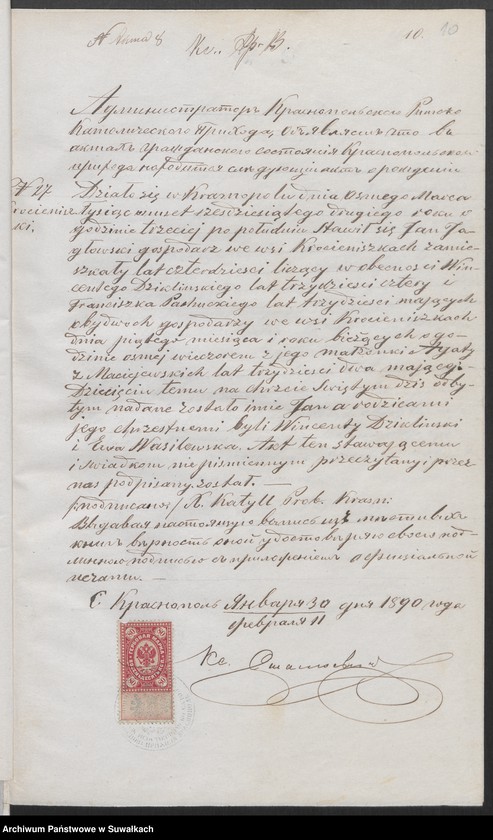 10. 10
Администраторъ Краснопольскаго Римско
Католическаго Прихода, объявляетъ что въ
актахъ гражданскаго состоянія Краснопольскаго
прихода находится слѣдующій актъ о рожденіи
№ 27 Działo się w Krasnopolu dnia osmego Marca
Krocieniszki, tysiąc osmset sześćdziesiątego drugiego roku o
godzinie trzeciej po południu Stawił się Jan Ja-
głowski gospodarz we wsi Krocieniszkach zamie-
szkały lat czterdzieści liczący w obecności Win-
centego Dzielinskiego lat trzydzieści cztery i
Franciszka lat trzydzieści mających
obydwóch gospodarzy we wsi Krocieniszkach
dnia piątego miesiąca i roku bieżących o go-
dzinie osmej wieczorem z jego małżonki Agaty
z Maciejewskich lat trzydzieści dwa mającej.
Dziecięciu temu na chrzcie Świętym dziś odby-
tym nadane zostało imie Jan a rodzicami
jego chrzestnemi byli Wincenty Dzielinski
i Ewa Wasilewska. Akt ten stawającemu
i świadkom niepiśmiennym przeczytany i przez
nas podpisany został. —
/:podpisano:/ X. Katyll Prob. Krasn:
Выдавая настоящую выпись изъ метивихъ
книгъ вѣрность оной удостовѣряю своею под-
писью съ приложеніемъ оффиціальной
печати. —
С. Краснополь Января 30 дня 1890 года
Февраля 11
Кс.
80 80
80 80
Archiwum Państwowe w Suwałkach